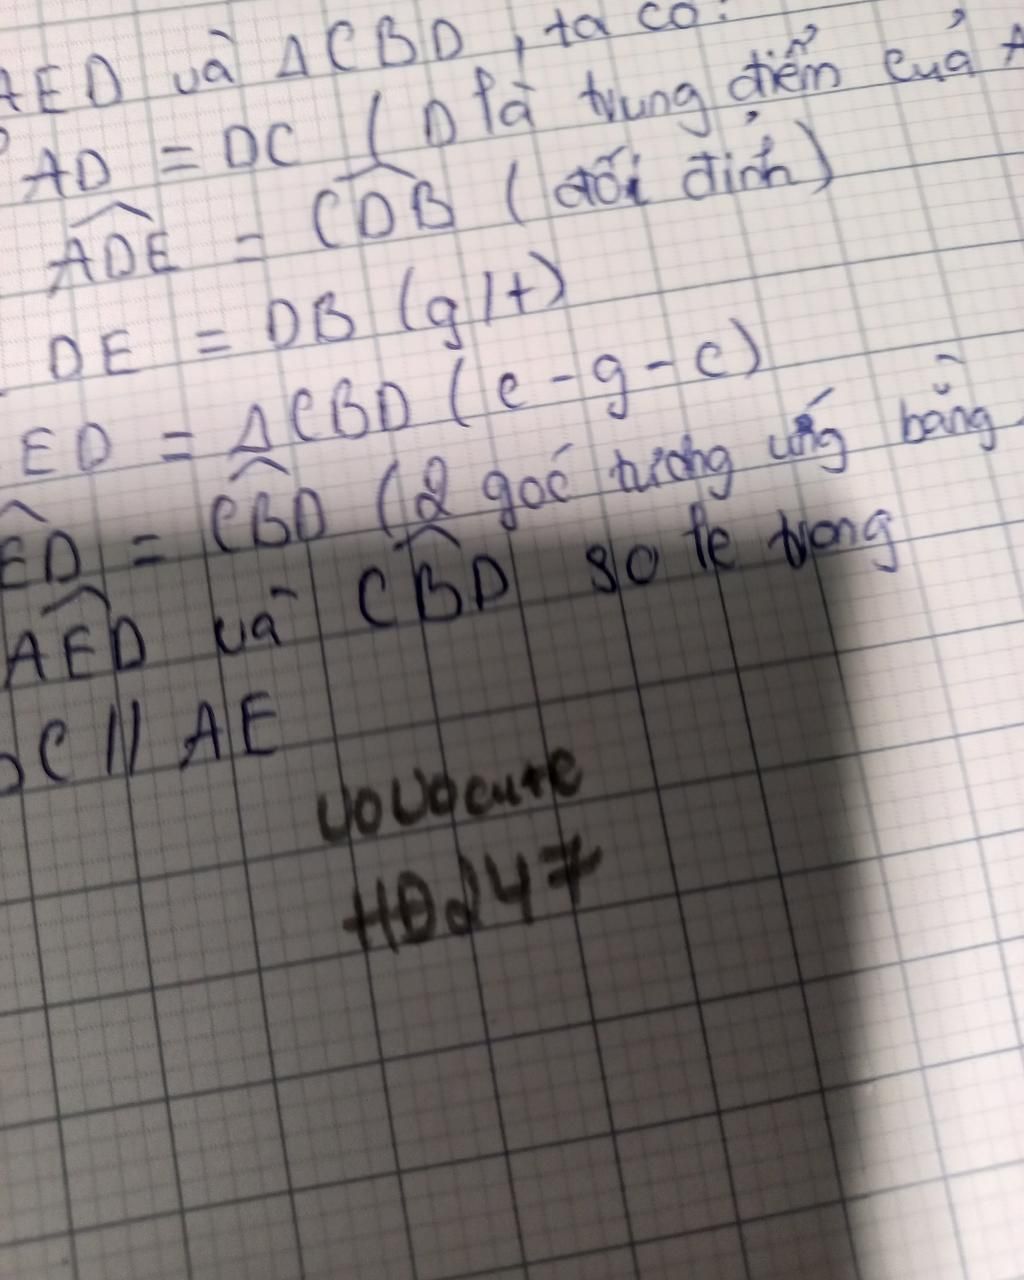 AED và ΔCBD, ta có:
AD = DC (D là trung điểm của A
ADE = CDB (đối đỉnh)
DE = DB (g/t)
ED = ΔCBD (c-g-c)
ED = CBD (2 góc tương ứng bằng
AED và CBD so le trong
C // AE